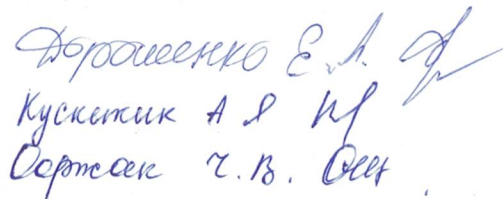 Дорошенко Е. А.
Кускижик А Я
Ооржак Ч. В.